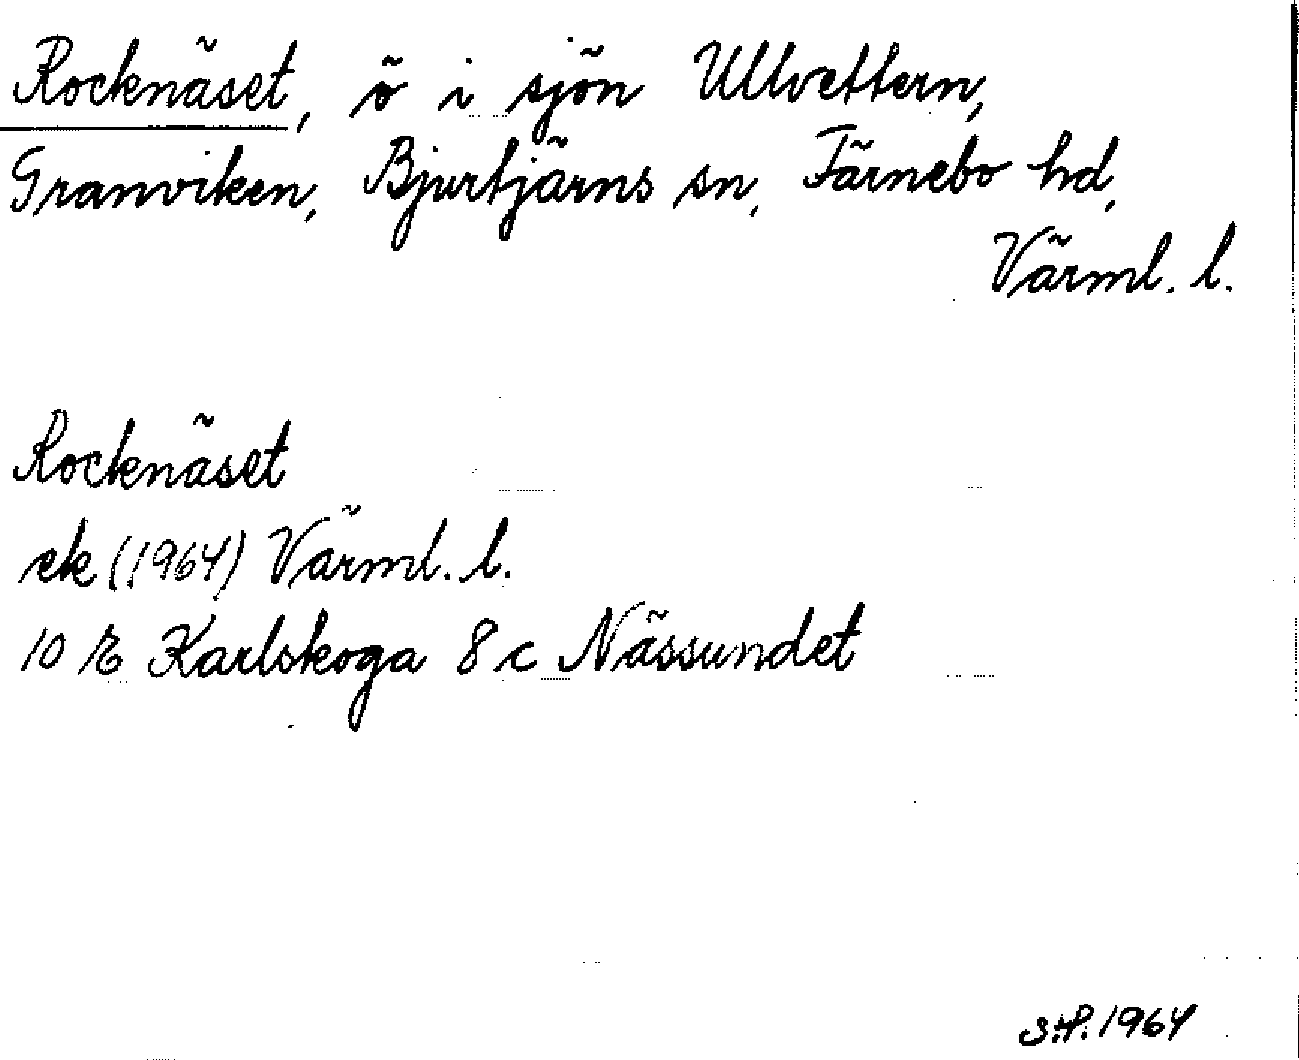 Rocknäset, ö i sjön Ullvettern,
Granviken, Bjurtjärns sn, Färnebo hd,
Värml. l.
Rocknäset
ek (1964) Värml. l.
10 E Karlskoga 8 c Nässundet
S.P. 1964